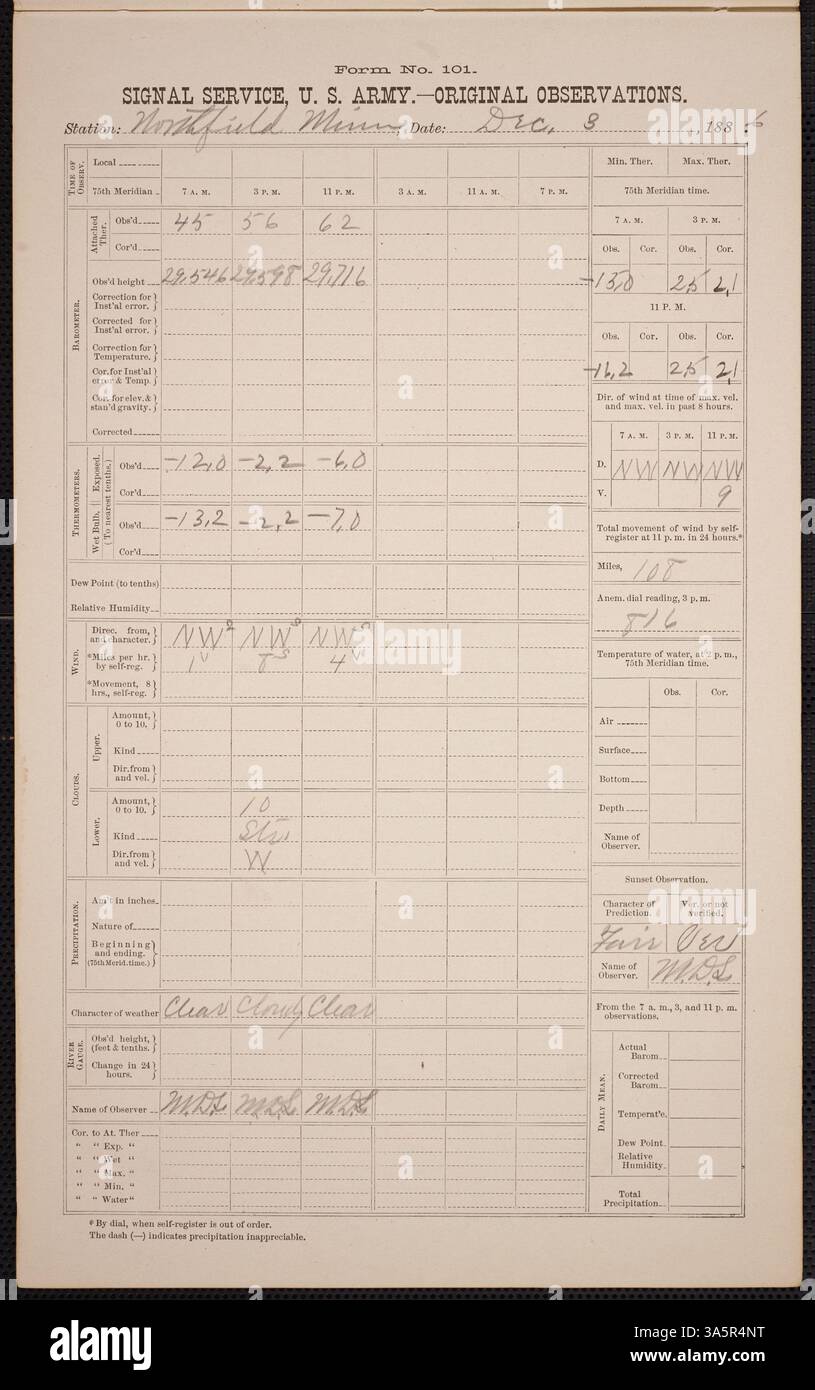 Form No. 101.
SIGNAL SERVICE, U. S. ARMY.—ORIGINAL OBSERVATIONS.
Station: Northfield Minn, Date: Dec. 3, 1886
TIME OF OBSERV.
Local
75th Meridian 7 A. M. 3 P. M. 11 P. M. 3 A. M. 11 A. M. 7 P. M.
Attached Ther.
Obs'd 45 56 62
Cor'd
BAROMETER.
Obs'd height 29,546 29,598 29,716
Correction for Inst'al error.
Corrected for Inst'al error.
Correction for Temperature.
Cor. for Inst'al error & Temp.
Cor. for elev. & stan'd gravity.
Corrected
THERMOMETERS.
(To nearest tenths.)
Exposed.
Obs'd -12,0 -2,2 -6,0
Cor'd
Wet Bulb,
Obs'd -13,2 -2,2 -7,0
Cor'd
Dew Point (to tenths)
Relative Humidity
WIND.
Direc. from, and character. NW NW NW
*Miles per hr. by self-reg. 1 8 4
*Movement, 8 hrs., self-reg.
CLOUDS.
Upper.
Amount, 0 to 10.
Kind
Dir. from and vel.
Lower.
Amount, 0 to 10. 10
Kind
Dir. from and vel. W
PRECIPITATION.
Am't in inches
Nature of
Beginning and ending. (75th Merid. time.)
Character of weather Clear Cloudy Clear
RIVER GAUGE.
Obs'd height, (feet & tenths.
Change in 24 hours.
Name of Observer M.D.S. M.D.S. M.D.S.
Cor. to At. Ther
" " Exp. "
" " Wet "
" " Max. "
" " Min. "
" " Water"
* By dial, when self-register is out of order.
The dash (—) indicates precipitation inappreciable.
Min. Ther. Max. Ther.
75th Meridian time.
7 A. M. 3 P. M.
Obs. Cor. Obs. Cor.
-15,0 2,5 2,1
11 P. M.
Obs. Cor. Obs. Cor.
-16,2 2,5 2,1
Dir. of wind at time of max. vel. and max. vel. in past 8 hours.
7 A. M. 3 P. M. 11 P. M.
D. NW NW NW
V. 9
Total movement of wind by self-register at 11 p. m. in 24 hours.*
Miles, 108
Anem. dial reading, 3 p. m.
816
Temperature of water, at 2 p. m., 75th Meridian time.
Obs. Cor.
Air
Surface
Bottom
Depth
Name of Observer.
Sunset Observation.
Character of Prediction. Ver. or not verified.
Fair Ver
Name of Observer. M.D.S.
From the 7 a. m., 3, and 11 p. m. observations.
DAILY MEAN.
Actual Barom
Corrected Barom
Temperat'e.
Dew Point
Relative Humidity
Total Precipitation
alamy
Image ID: 3A5R4NT
www.alamy.com